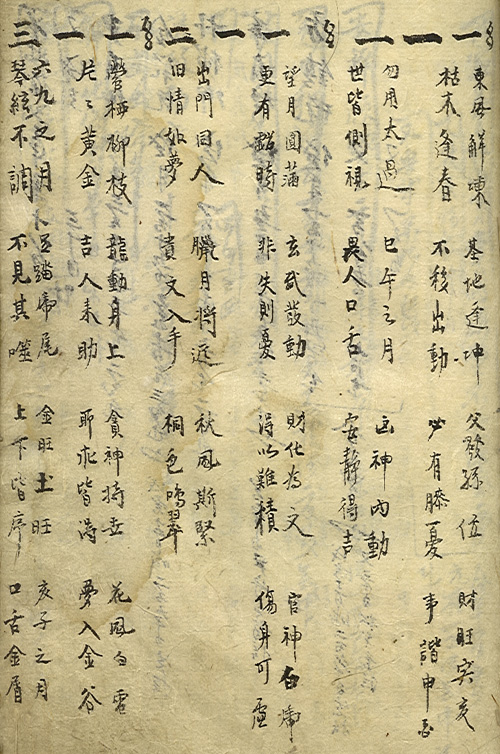 一一一
東風解凍 基地逢坤 父發孫位 財旺寅亥
枯木逢春 不移出動 必有膝憂 事諧申酉
勿用太過 巳午之月 凶神內動
世皆側視 畏人口舌 安靜得吉
一一二
望月圓滿 玄武發動 財化為文 官神白虎
更有虧時 非失則憂 得以難積 傷身可慮
出門同人 臘月將近 秋風斯緊
旧情如夢 貴文入手 桐色鳴翠
一一三
鶯栖柳枝 龍動身上 貪神持世 花風白雪
片〻黃金 吉人來助 所求皆満 夢入金谷
六九之月 足踏虎尾 金旺土旺 亥子之月
琴絃不調 不見其噬 上下皆序 口舌金屑